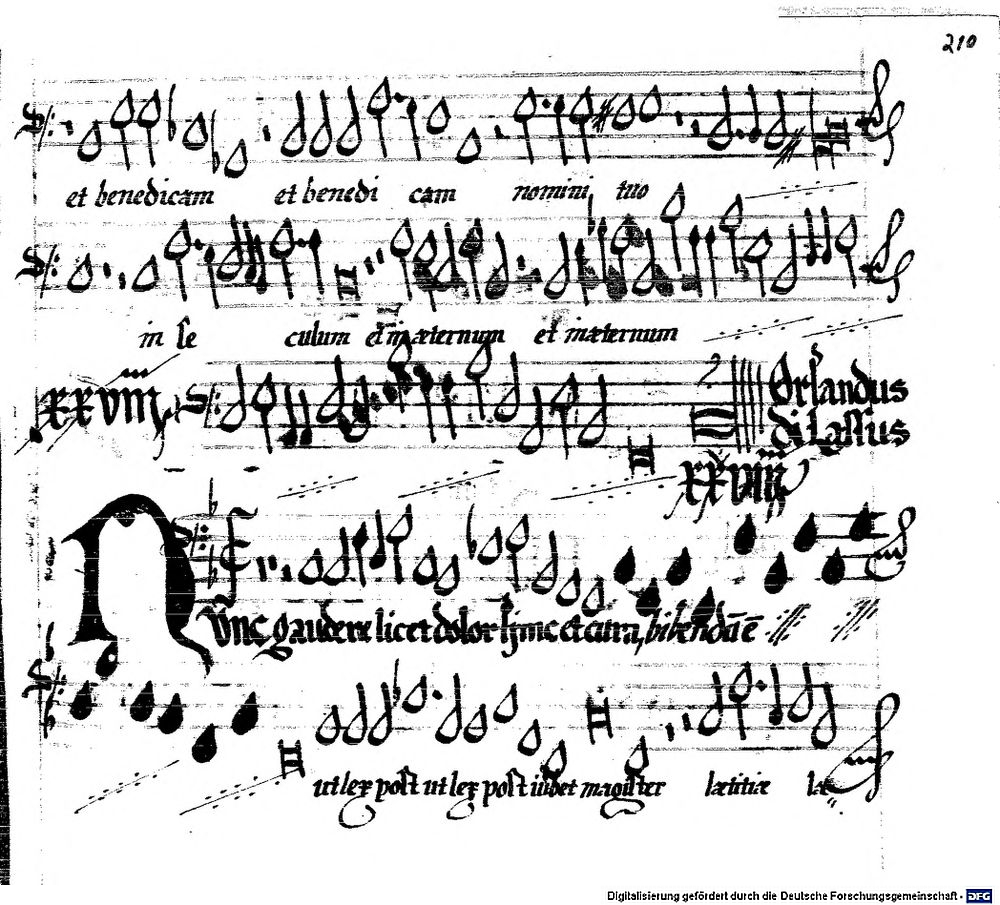 210
et benedicam et benedi cam nomini tuo
in se culum et in æternum et in æternum
xxviii Orlandus
di Lassus
xxviii
Nunc gaudere licet dolor hinc et cura, bibendū ē
ut lex post ut lex post iubet magister lætitiæ læ
Digitalisierung gefördert durch die Deutsche Forschungsgemeinschaft - DFG